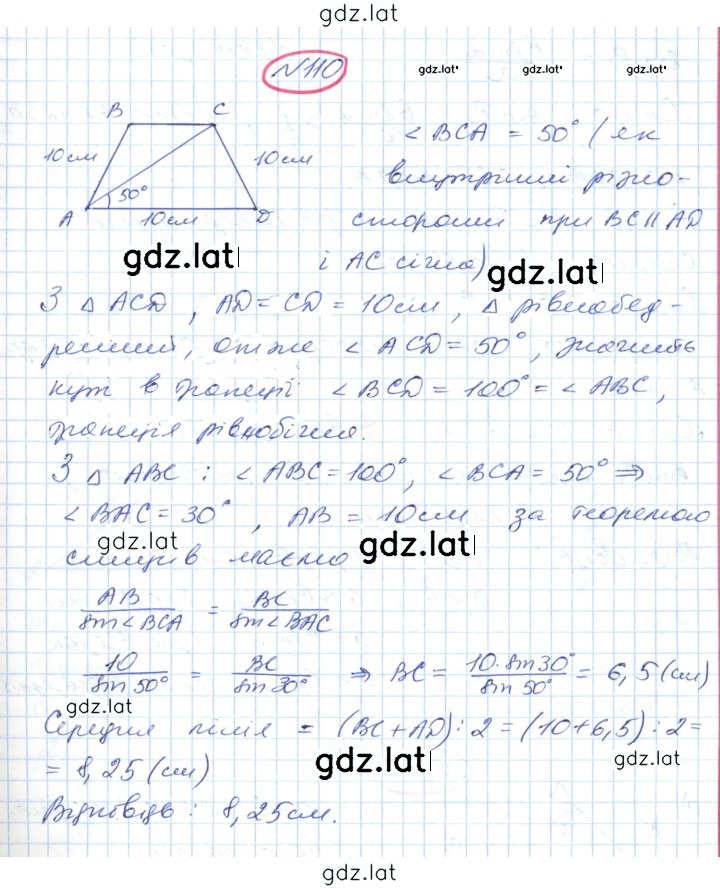 gdz.lat
№110
gdz.lat gdz.lat gdz.lat
B C
10см 10см
50°
A 10см D
∠BCA = 50° (як
внутрішні різно-
сторонні при BC || AD
і AC січна)
gdz.lat gdz.lat
З △ ACD, AD = CD = 10см, △ рівнобед-
ренний, отже ∠ ACD = 50°, значить
кут в трапеції ∠ BCD = 100° = ∠ ABC,
трапеція рівнобічна.
З △ ABC : ∠ ABC = 100°, ∠ BCA = 50° ⇒
∠ BAC = 30°, AB = 10см за теоремою
gdz.lat gdz.lat
синусів маємо
AB / sin∠BCA = BC / sin∠BAC
10 / sin 50° = BC / sin 30° ⇒ BC = 10·sin30° / sin 50° = 6,5 (см)
gdz.lat
Середня лінія = (BC + AD) : 2 = (10 + 6,5) : 2 =
= 8,25 (см)
gdz.lat gdz.lat
Відповідь : 8,25см.
gdz.lat